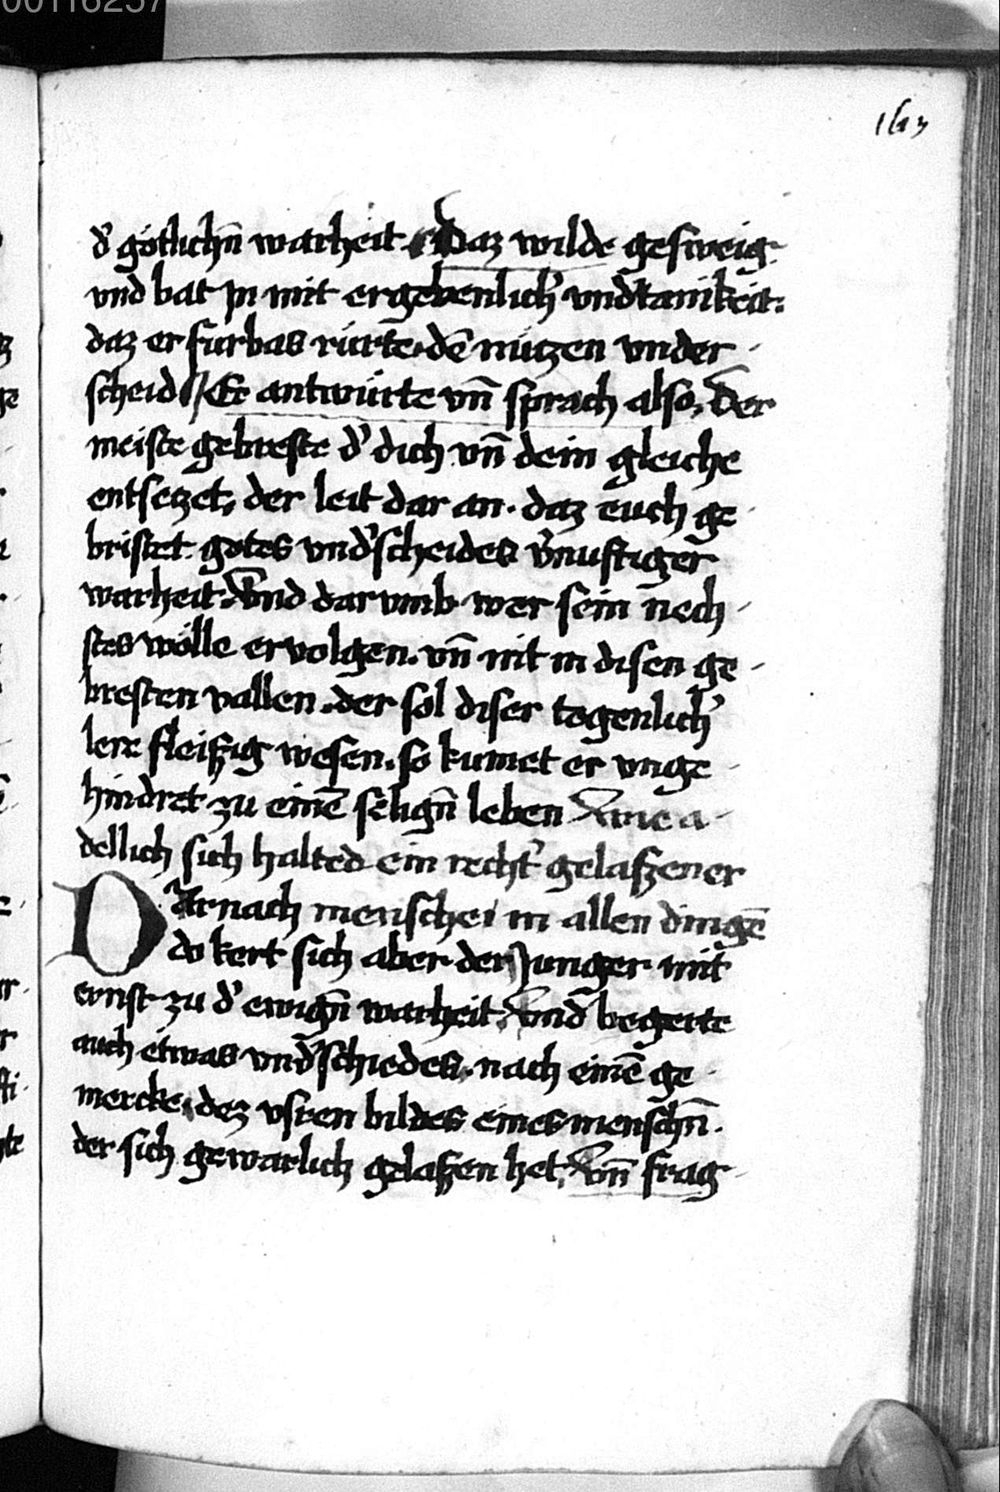 00116237
163
d' götlichn̄ warheit. Daz wilde gesweig
vnd bat in mit ergebenlich' vndtanikeit.
daz er fürbas rürte. dē nützen vnder
scheid Er antwürte vn̄ sprach also. Der
meiste gebreste d' dich vn̄ dein gleiche
entsetzet, der leit dar an. daz euch ge
bristet gotes vnd'scheides v'nuftiger
warheit. Vnd dar vmb wer sein nech
stes wölle ervolgen. vn̄ nit in disen ge
bresten vallen. der sol diser togenlich'
lere fleiszig wesen. so kumet er vnge
hindret zu einē selign̄ leben Wie a
dellich sich halted ein recht' gelaszener
DArnach mensche in allen dingē
do kert sich aber der Junger mit
ernst zu d' ewign̄ warheit. Vnd begerte
auch etwas vnd'schiedes. nach einē ge
mercke. dez vsren bildes eines menschn̄.
der sich gewarlich gelaszen het. Vn̄ frag